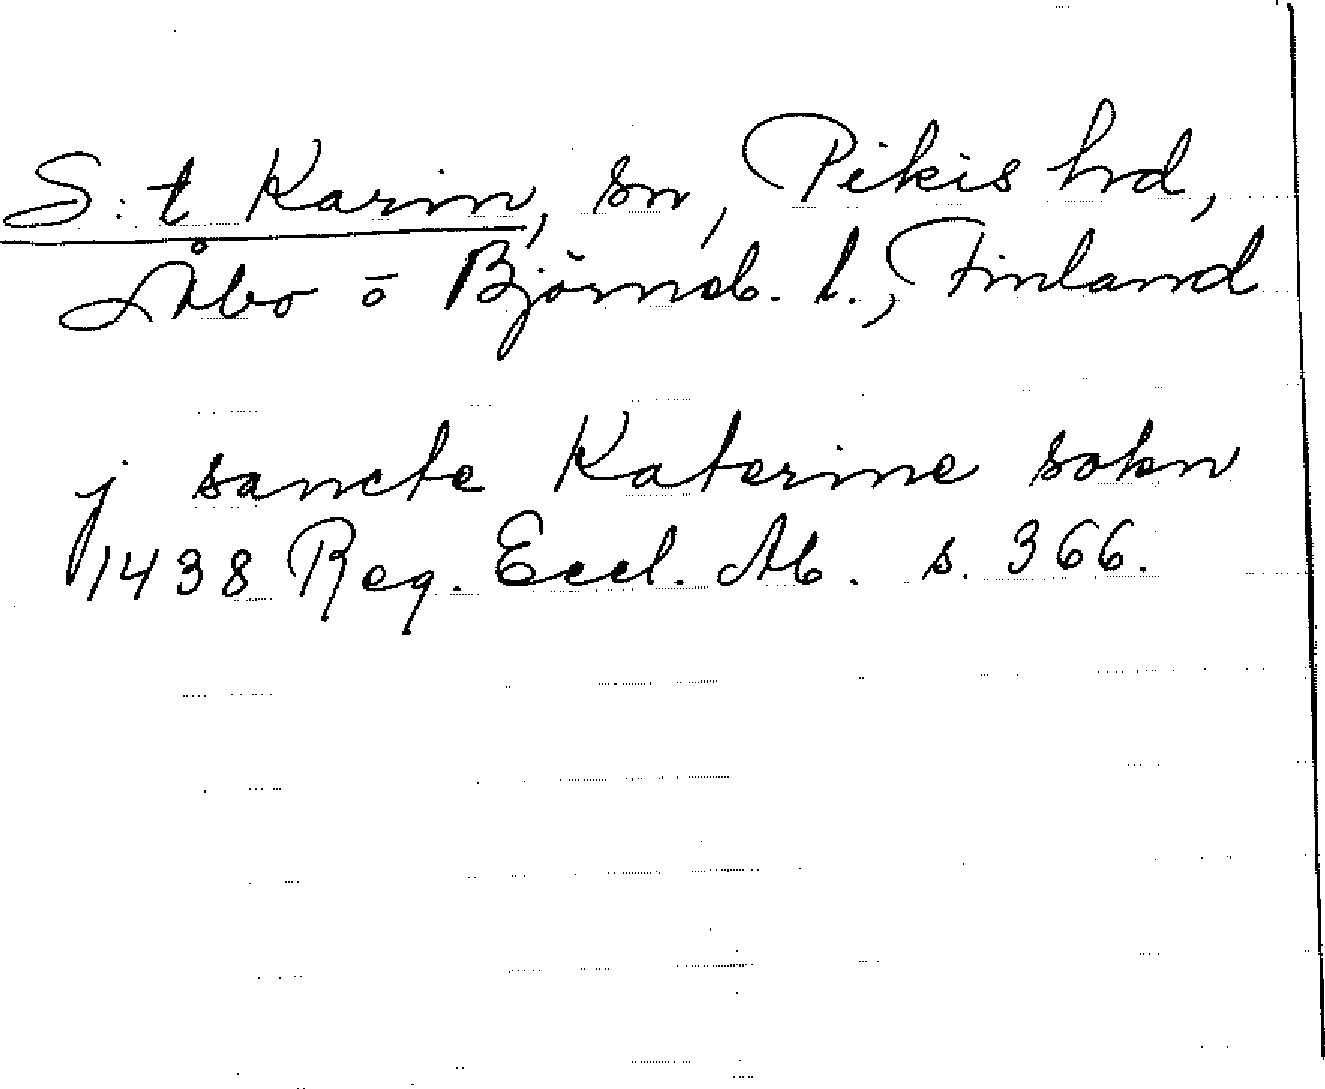 S:t Karin, sn, Pikis hrd,
Åbo o Björneb. l., Finland
j sancte Katerine sokn
1438 Reg. Eccl. Ab. s. 366.